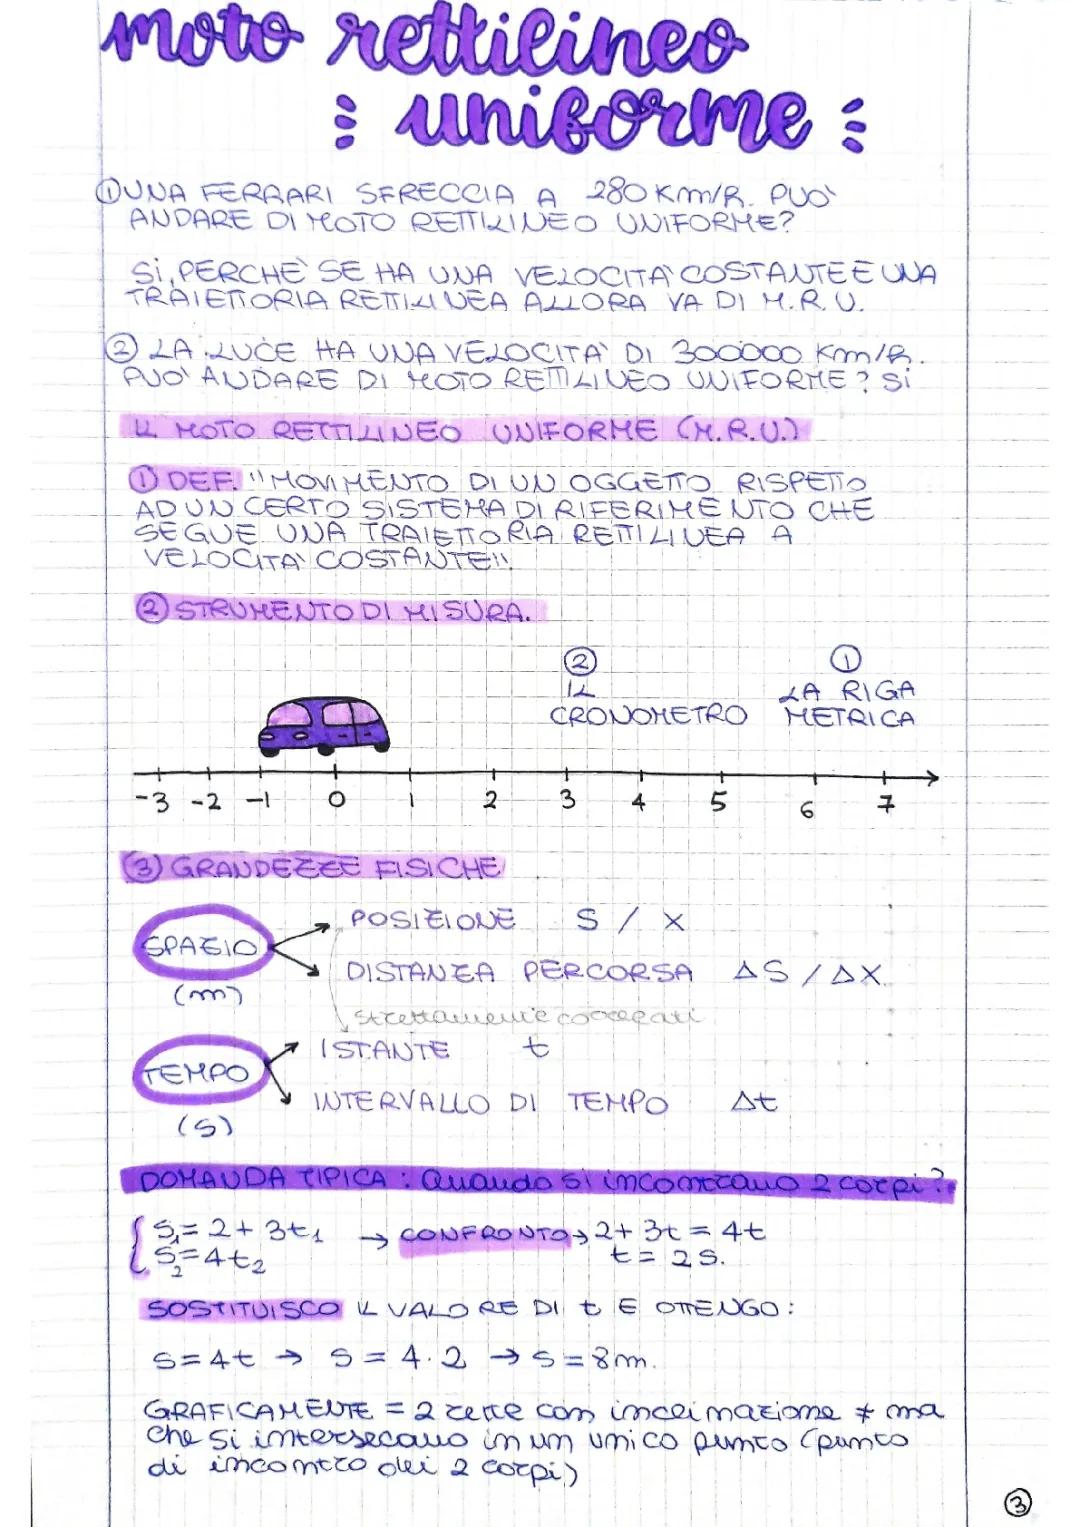 moto rettilineo
uniforme
① UNA FERRARI SFRECCIA A 280 Km/h. PUO'
ANDARE DI MOTO RETTILINEO UNIFORME?
SI, PERCHE' SE HA UNA VELOCITA' COSTANTE E UNA
TRAIETTORIA RETTILINEA ALLORA VA DI M.R.U.
② LA LUCE HA UNA VELOCITA' DI 300000 Km/h.
PUO' ANDARE DI MOTO RETTILINEO UNIFORME? SI
IL MOTO RETTILINEO UNIFORME (M.R.U.)
① DEF. "MOVIMENTO DI UN OGGETTO RISPETTO
AD UN CERTO SISTEMA DI RIFERIMENTO CHE
SEGUE UNA TRAIETTORIA RETTILINEA A
VELOCITA' COSTANTE".
② STRUMENTO DI MISURA.
② ①
IL LA RIGA
CRONOMETRO METRICA
-3 -2 -1 0 1 2 3 4 5 6 7
③ GRANDEZZE FISICHE
POSIZIONE S / X
SPAZIO
DISTANZA PERCORSA ΔS / ΔX
(m)
strettamente collegati
ISTANTE t
TEMPO
INTERVALLO DI TEMPO Δt
(s)
DOMANDA TIPICA: Quando si incontrano 2 corpi?
{ S₁ = 2 + 3t₁ → CONFRONTO → 2 + 3t = 4t
S₂ = 4t₂ t = 2 s.
SOSTITUISCO IL VALORE DI t E OTTENGO:
S = 4t → S = 4·2 → S = 8m.
GRAFICAMENTE = 2 rette con inclinazione ≠ ma
che si intersecano in un unico punto (punto
di incontro dei 2 corpi)
③